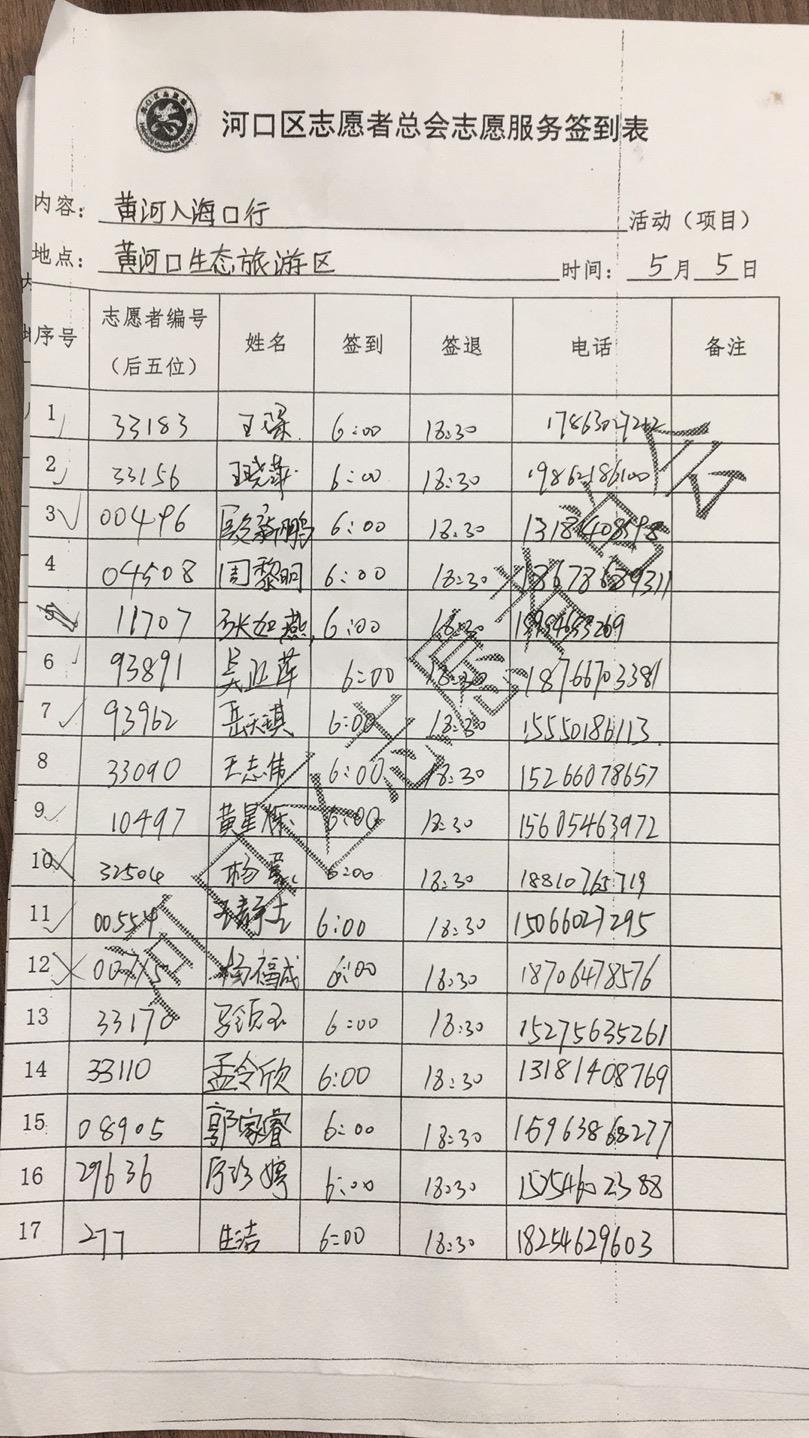 河口区志愿者总会志愿服务签到表
内容：黄河入海口行 活动（项目）
地点：黄河口生态旅游区 时间：5月5日
序号 志愿者编号（后五位） 姓名 签到 签退 电话 备注
1 33183 王 6:00 18:30
2 33156 王晓 6:00 18:30 19862186100
3 00496 段新鹏 6:00 18:30
4 04508 周黎明 6:00 18:30
5 11707 张如燕 6:00 18:30
6 93891 吴亚萍 6:00 18:30 18766703381
7 93962 岳天琪 6:00 18:30 15550186113
8 33090 王志伟 6:00 18:30 15266078657
9 10497 黄星 6:00 18:30 15605463972
10 32504 杨 6:00 18:30 18810765719
11 00554 王静 6:00 18:30 15066027295
12 00715 杨福成 6:00 18:30 18706478576
13 33170 马领玉 6:00 18:30 15275635261
14 33110 孟令欣 6:00 18:30 13181408769
15 08905 郭家睿 6:00 18:30 15963868277
16 29636 婷 6:00 18:30 15254602388
17 277 生洁 6:00 18:30 18254629603
河口区志愿者总会